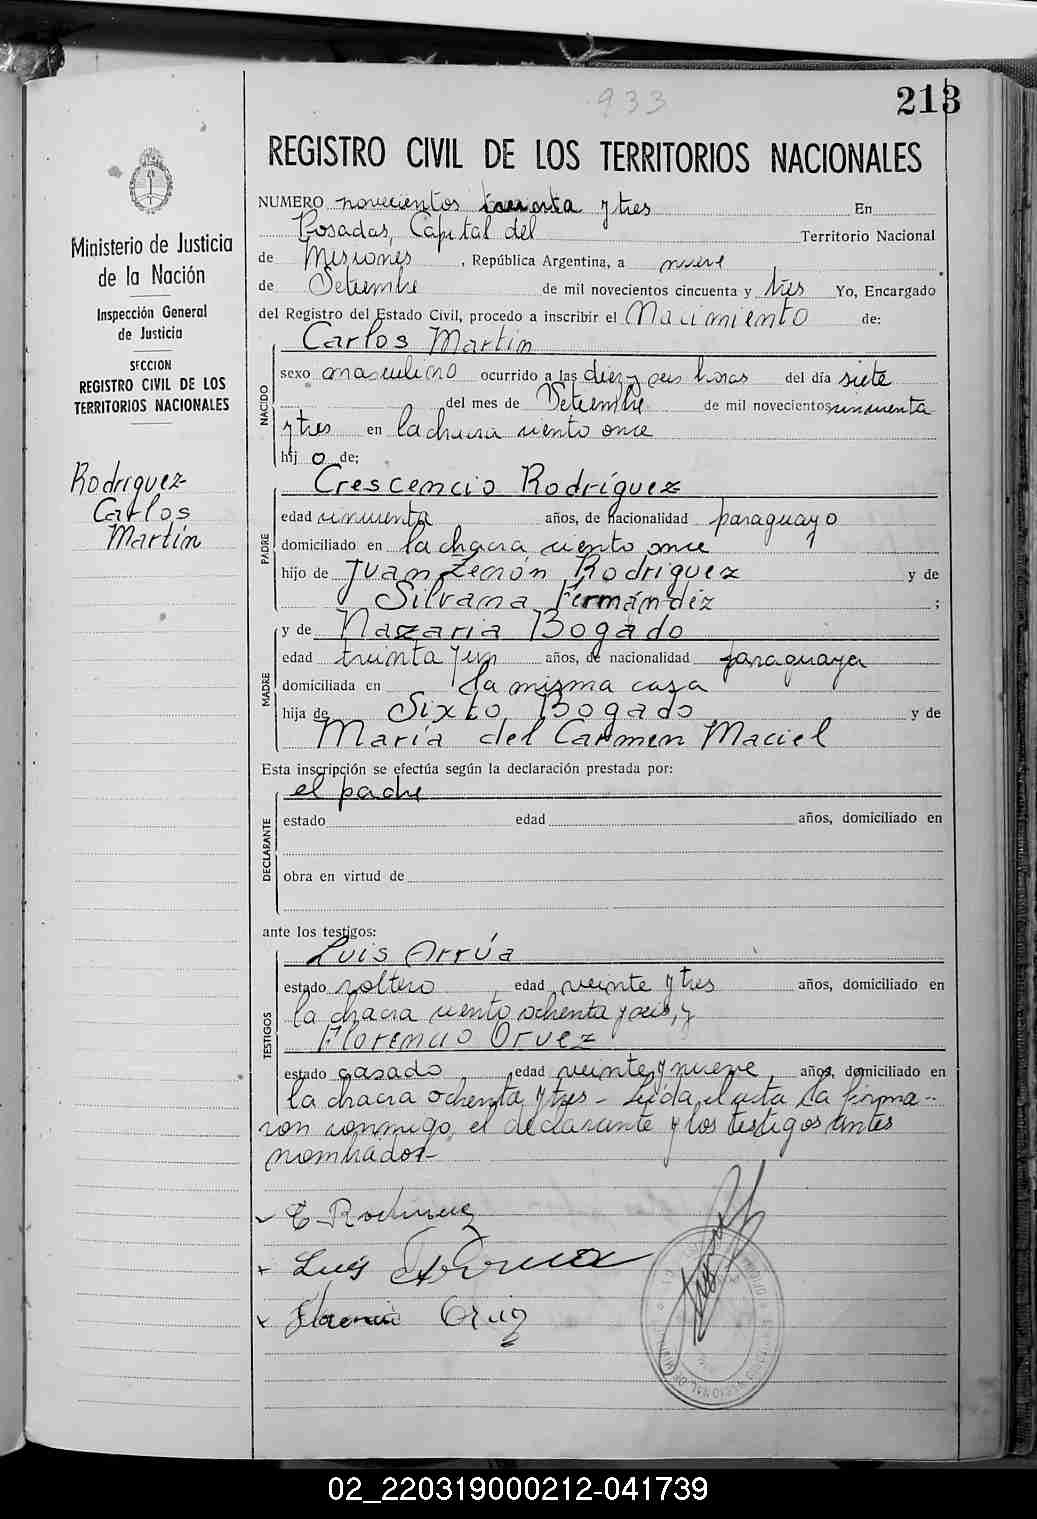 933
213
REGISTRO CIVIL DE LOS TERRITORIOS NACIONALES
Ministerio de Justicia
de la Nación
Inspección General
de Justicia
SECCION
REGISTRO CIVIL DE LOS
TERRITORIOS NACIONALES
Rodríguez
Carlos
Martín
NUMERO novecientos treinta y tres En
Posadas, Capital del Territorio Nacional
de Misiones, República Argentina, a nueve
de Setiembre de mil novecientos cincuenta y tres Yo, Encargado
del Registro del Estado Civil, procedo a inscribir el Nacimiento de:
NACIDO
Carlos Martín
sexo masculino ocurrido a las diez y seis horas del día siete
del mes de Setiembre de mil novecientos cincuenta
y tres en la chacra ciento once
hijo de;
PADRE
Crescencio Rodríguez
edad cincuenta años, de nacionalidad paraguayo
domiciliado en la chacra ciento once
hijo de Juan Zenón Rodríguez y de
Silvana Fernández ;
MADRE
y de Nazaria Bogado
edad treinta y un años, de nacionalidad paraguaya
domiciliada en la misma casa
hija de Sixto Bogado y de
María del Carmen Maciel
Esta inscripción se efectúa según la declaración prestada por:
DECLARANTE
el padre
estado edad años, domiciliado en
obra en virtud de
ante los testigos:
TESTIGOS
Luis Arrúa
estado soltero, edad veinte y tres años, domiciliado en
la chacra ciento ochenta y seis, y
Florencio Oruez
estado casado, edad veinte y nueve, años, domiciliado en
la chacra ochenta y tres - Leída el acta la firma-
ron conmigo, el declarante y los testigos antes
nombrados-
C. Rodriguez
Luis Arrua
02_220319000212-041739